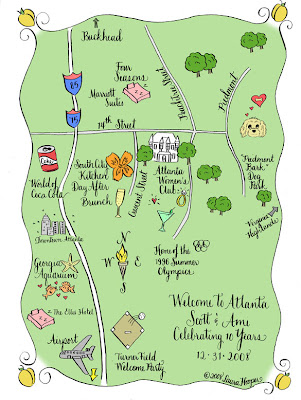 Buckhead
Four
Seasons
Marriott
Suites
85
75
14th Street
Peachtree Street
Piedmont
Coca-Cola
World of
Coca Cola
South City
Kitchen
Day After
Brunch
Crescent Street
Atlanta
Women's
Club
"Piedmont
Bark"
Dog
Park
Virginia
Highlands
Downtown Atlanta
Georgia
Aquarium
N
W E
S
Home of the
1996 Summer
Olympics
The Ellis Hotel
Airport
Turner Field
Welcome Party
Welcome To Atlanta
Scott & Ami
Celebrating 10 Years
12·31·2008
©2008 Laura Hooper